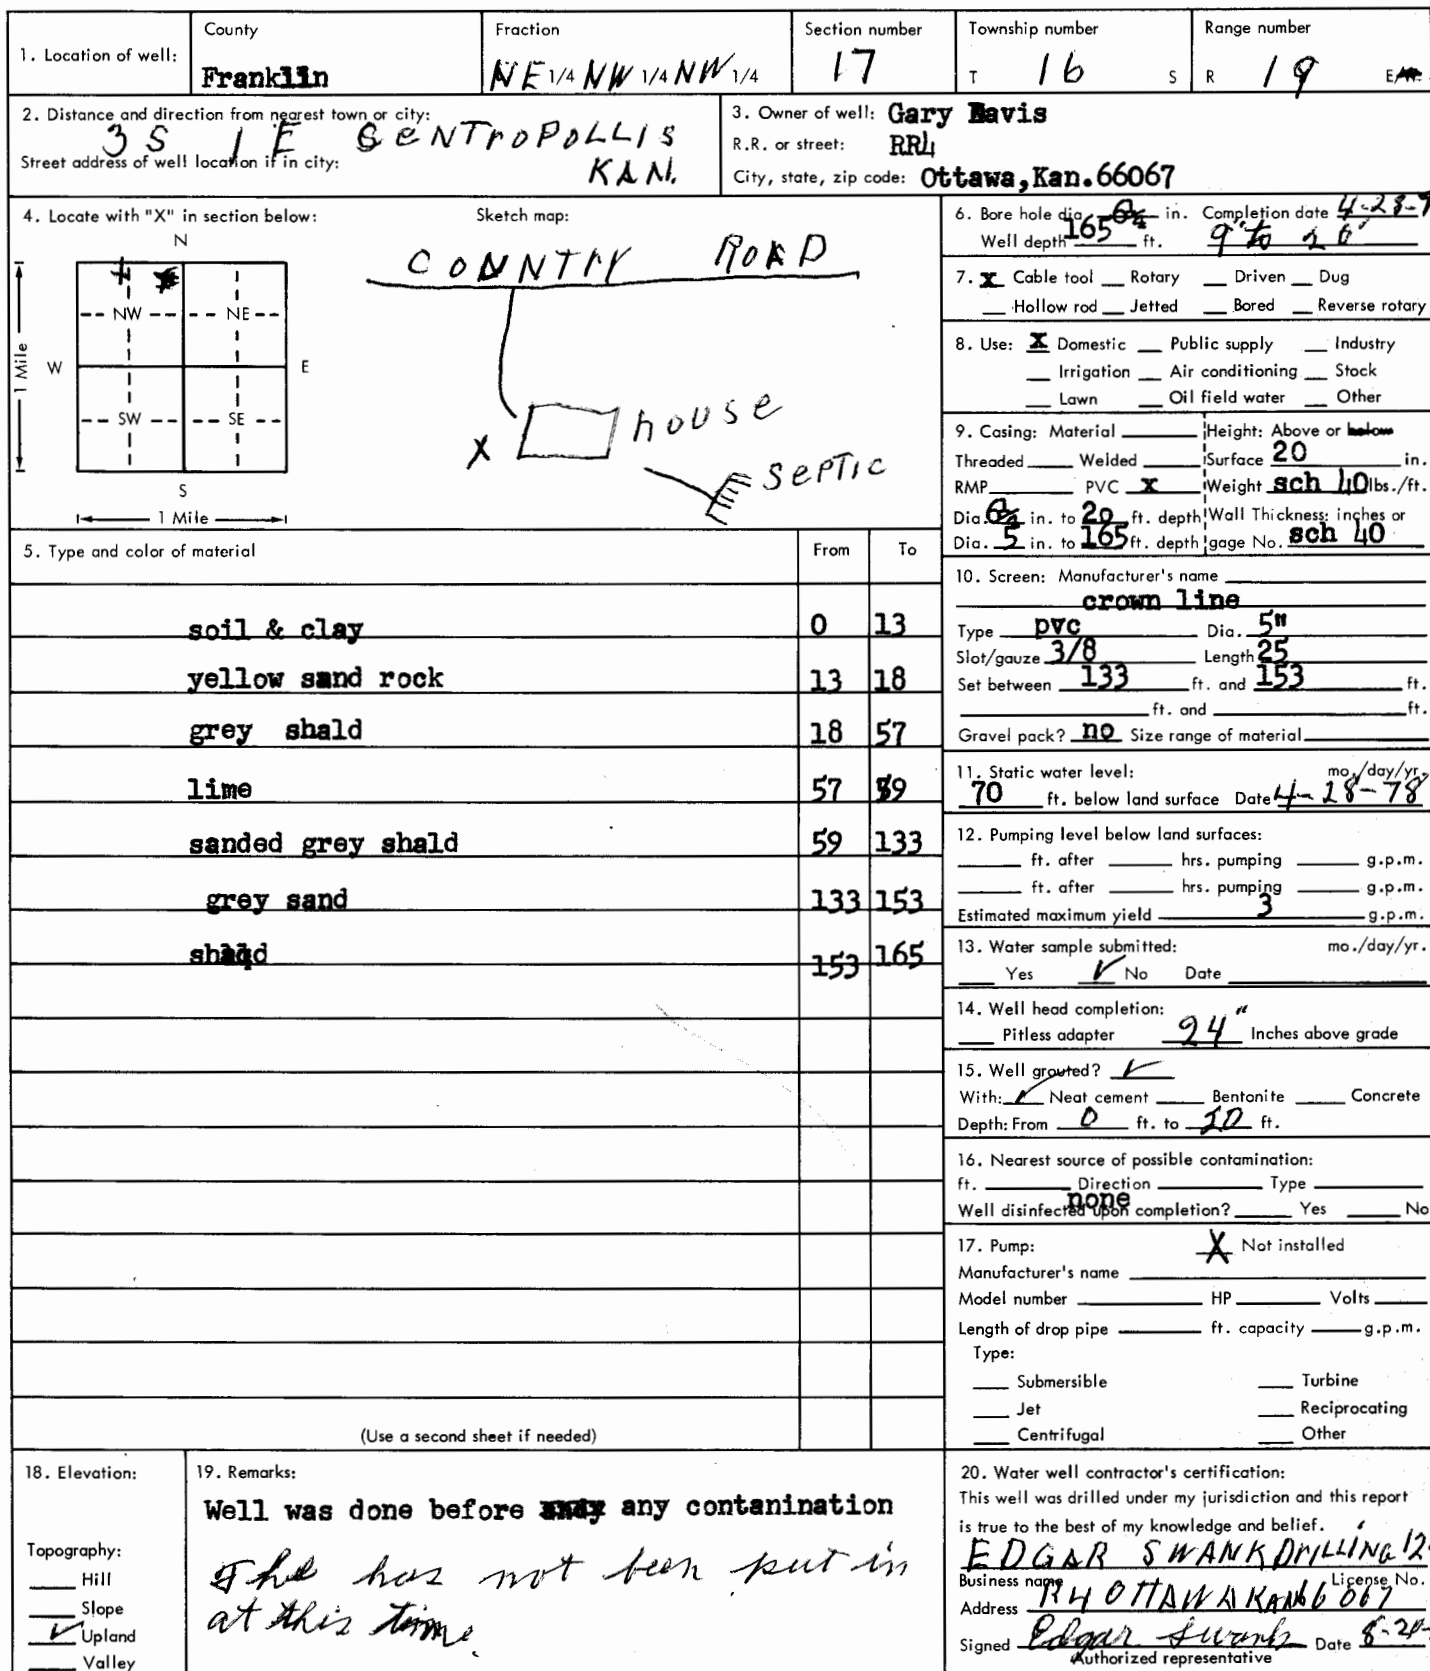 1. Location of well:
County
Franklin
Fraction
NE 1/4 NW 1/4 NW 1/4
Section number
17
Township number
T 16 S
Range number
R 19 E
2. Distance and direction from nearest town or city:
3 S 1 E CENTROPOLLIS
Street address of well location if in city:
KAN.
3. Owner of well: Gary Davis
R.R. or street: RR4
City, state, zip code: Ottawa,Kan.66067
4. Locate with "X" in section below:
N
NW NE
W E
SW SE
S
1 Mile
1 Mile
Sketch map:
COUNTRY ROAD
X house
SEPTIC
5. Type and color of material From To
soil & clay 0 13
yellow sand rock 13 18
grey shald 18 57
lime 57 59
sanded grey shald 59 133
grey sand 133 153
153 165
(Use a second sheet if needed)
6. Bore hole dia. in. Completion date 4-28-7
Well depth 165 ft. 9" to 20'
7. X Cable tool Rotary Driven Dug
Hollow rod Jetted Bored Reverse rotary
8. Use: X Domestic Public supply Industry
Irrigation Air conditioning Stock
Lawn Oil field water Other
9. Casing: Material Height: Above or below
Threaded Welded Surface 20 in.
RMP PVC X Weight sch 40 lbs./ft.
Dia. in. to 20 ft. depth Wall Thickness: inches or
Dia. 5 in. to 165 ft. depth gage No. sch 40
10. Screen: Manufacturer's name
crown line
Type pvc Dia. 5"
Slot/gauze 3/8 Length 25
Set between 133 ft. and 153 ft.
ft. and ft.
Gravel pack? no Size range of material
11. Static water level: mo./day/yr.
70 ft. below land surface Date 4-28-78
12. Pumping level below land surfaces:
ft. after hrs. pumping g.p.m.
ft. after hrs. pumping g.p.m.
Estimated maximum yield 3 g.p.m.
13. Water sample submitted: mo./day/yr.
Yes ✓ No Date
14. Well head completion:
Pitless adapter 24" Inches above grade
15. Well grouted? ✓
With: ✓ Neat cement Bentonite Concrete
Depth: From 0 ft. to 20 ft.
16. Nearest source of possible contamination:
ft. Direction Type
none
Well disinfected upon completion? Yes No
17. Pump: X Not installed
Manufacturer's name
Model number HP Volts
Length of drop pipe ft. capacity g.p.m.
Type:
Submersible Turbine
Jet Reciprocating
Centrifugal Other
18. Elevation:
Topography:
Hill
Slope
✓ Upland
Valley
19. Remarks:
Well was done before any contanination
The has not been put in
at this time.
20. Water well contractor's certification:
This well was drilled under my jurisdiction and this report
is true to the best of my knowledge and belief.
EDGAR SWANK DrILLING 12
Business name License No.
Address R4 OTTAWA KAN 66067
Signed Edgar Swank Date 8-20-
Authorized representative